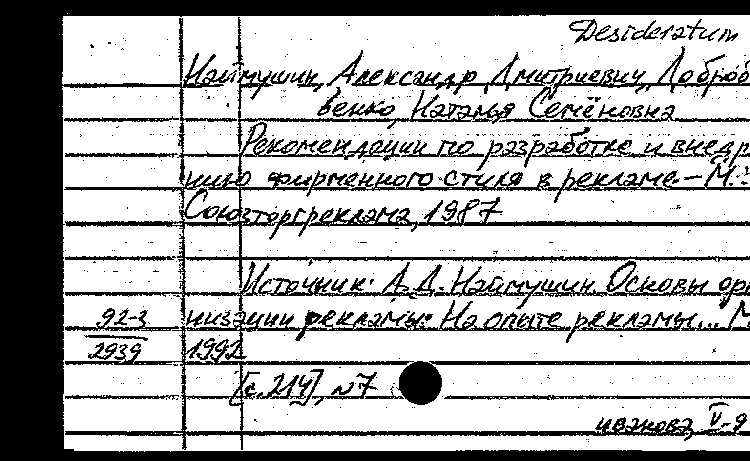 Desideratum
Наймушин, Александр Дмитриевич, Доброб
венко, Наталья Семёновна
Рекомендации по разработке и внедр
нию фирменного стиля в рекламе. – М.:
Союзторгреклама, 1987
Источник: А.Д. Наймушин. Основы орга
92-3 низации рекламы: На опыте рекламы... М
2939 1992
[с. 214], №7
иванова, V-9